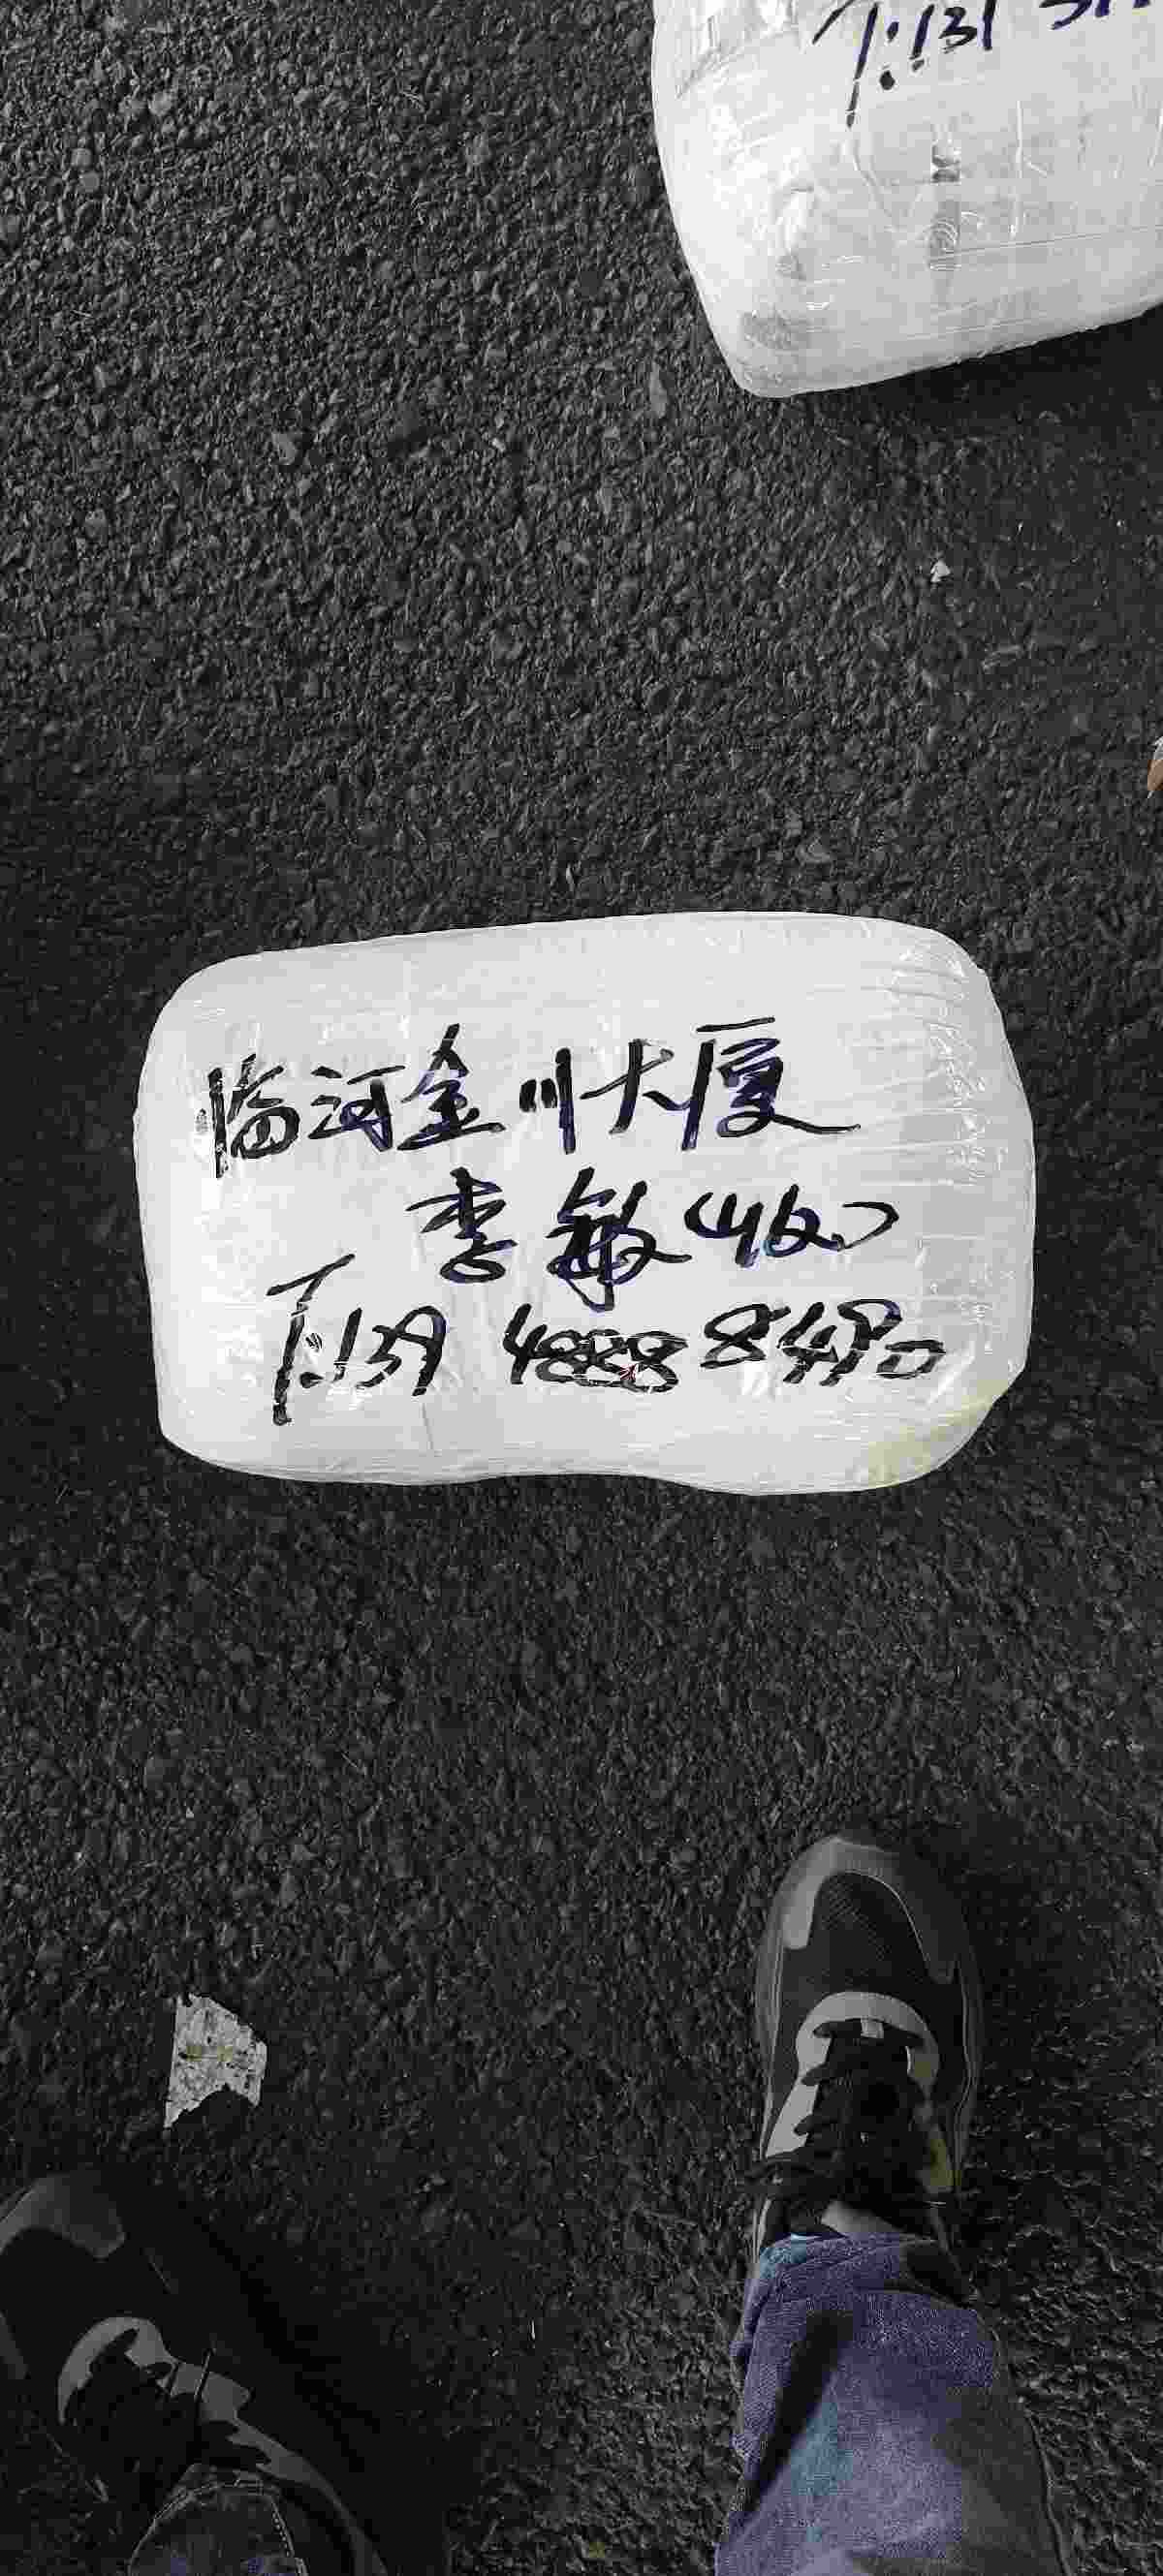 T:131
临河金川大厦
李敏(收)
T:139 4888 8490